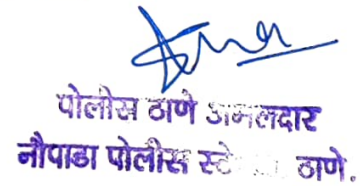 पोलीस ठाणे अमलदार
नौपाडा पोलीस ठाणे.